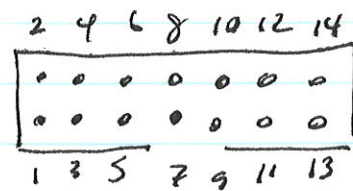 2 4 6 8 10 12 14
1 3 5 7 9 11 13